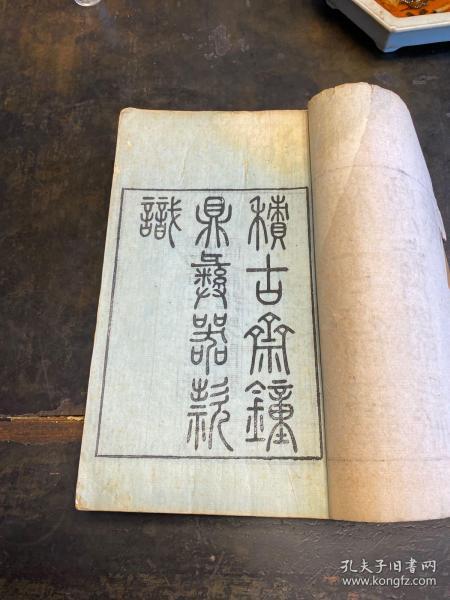 積古齋鐘
鼎彝器款
識
孔夫子旧书网
www.kongfz.com